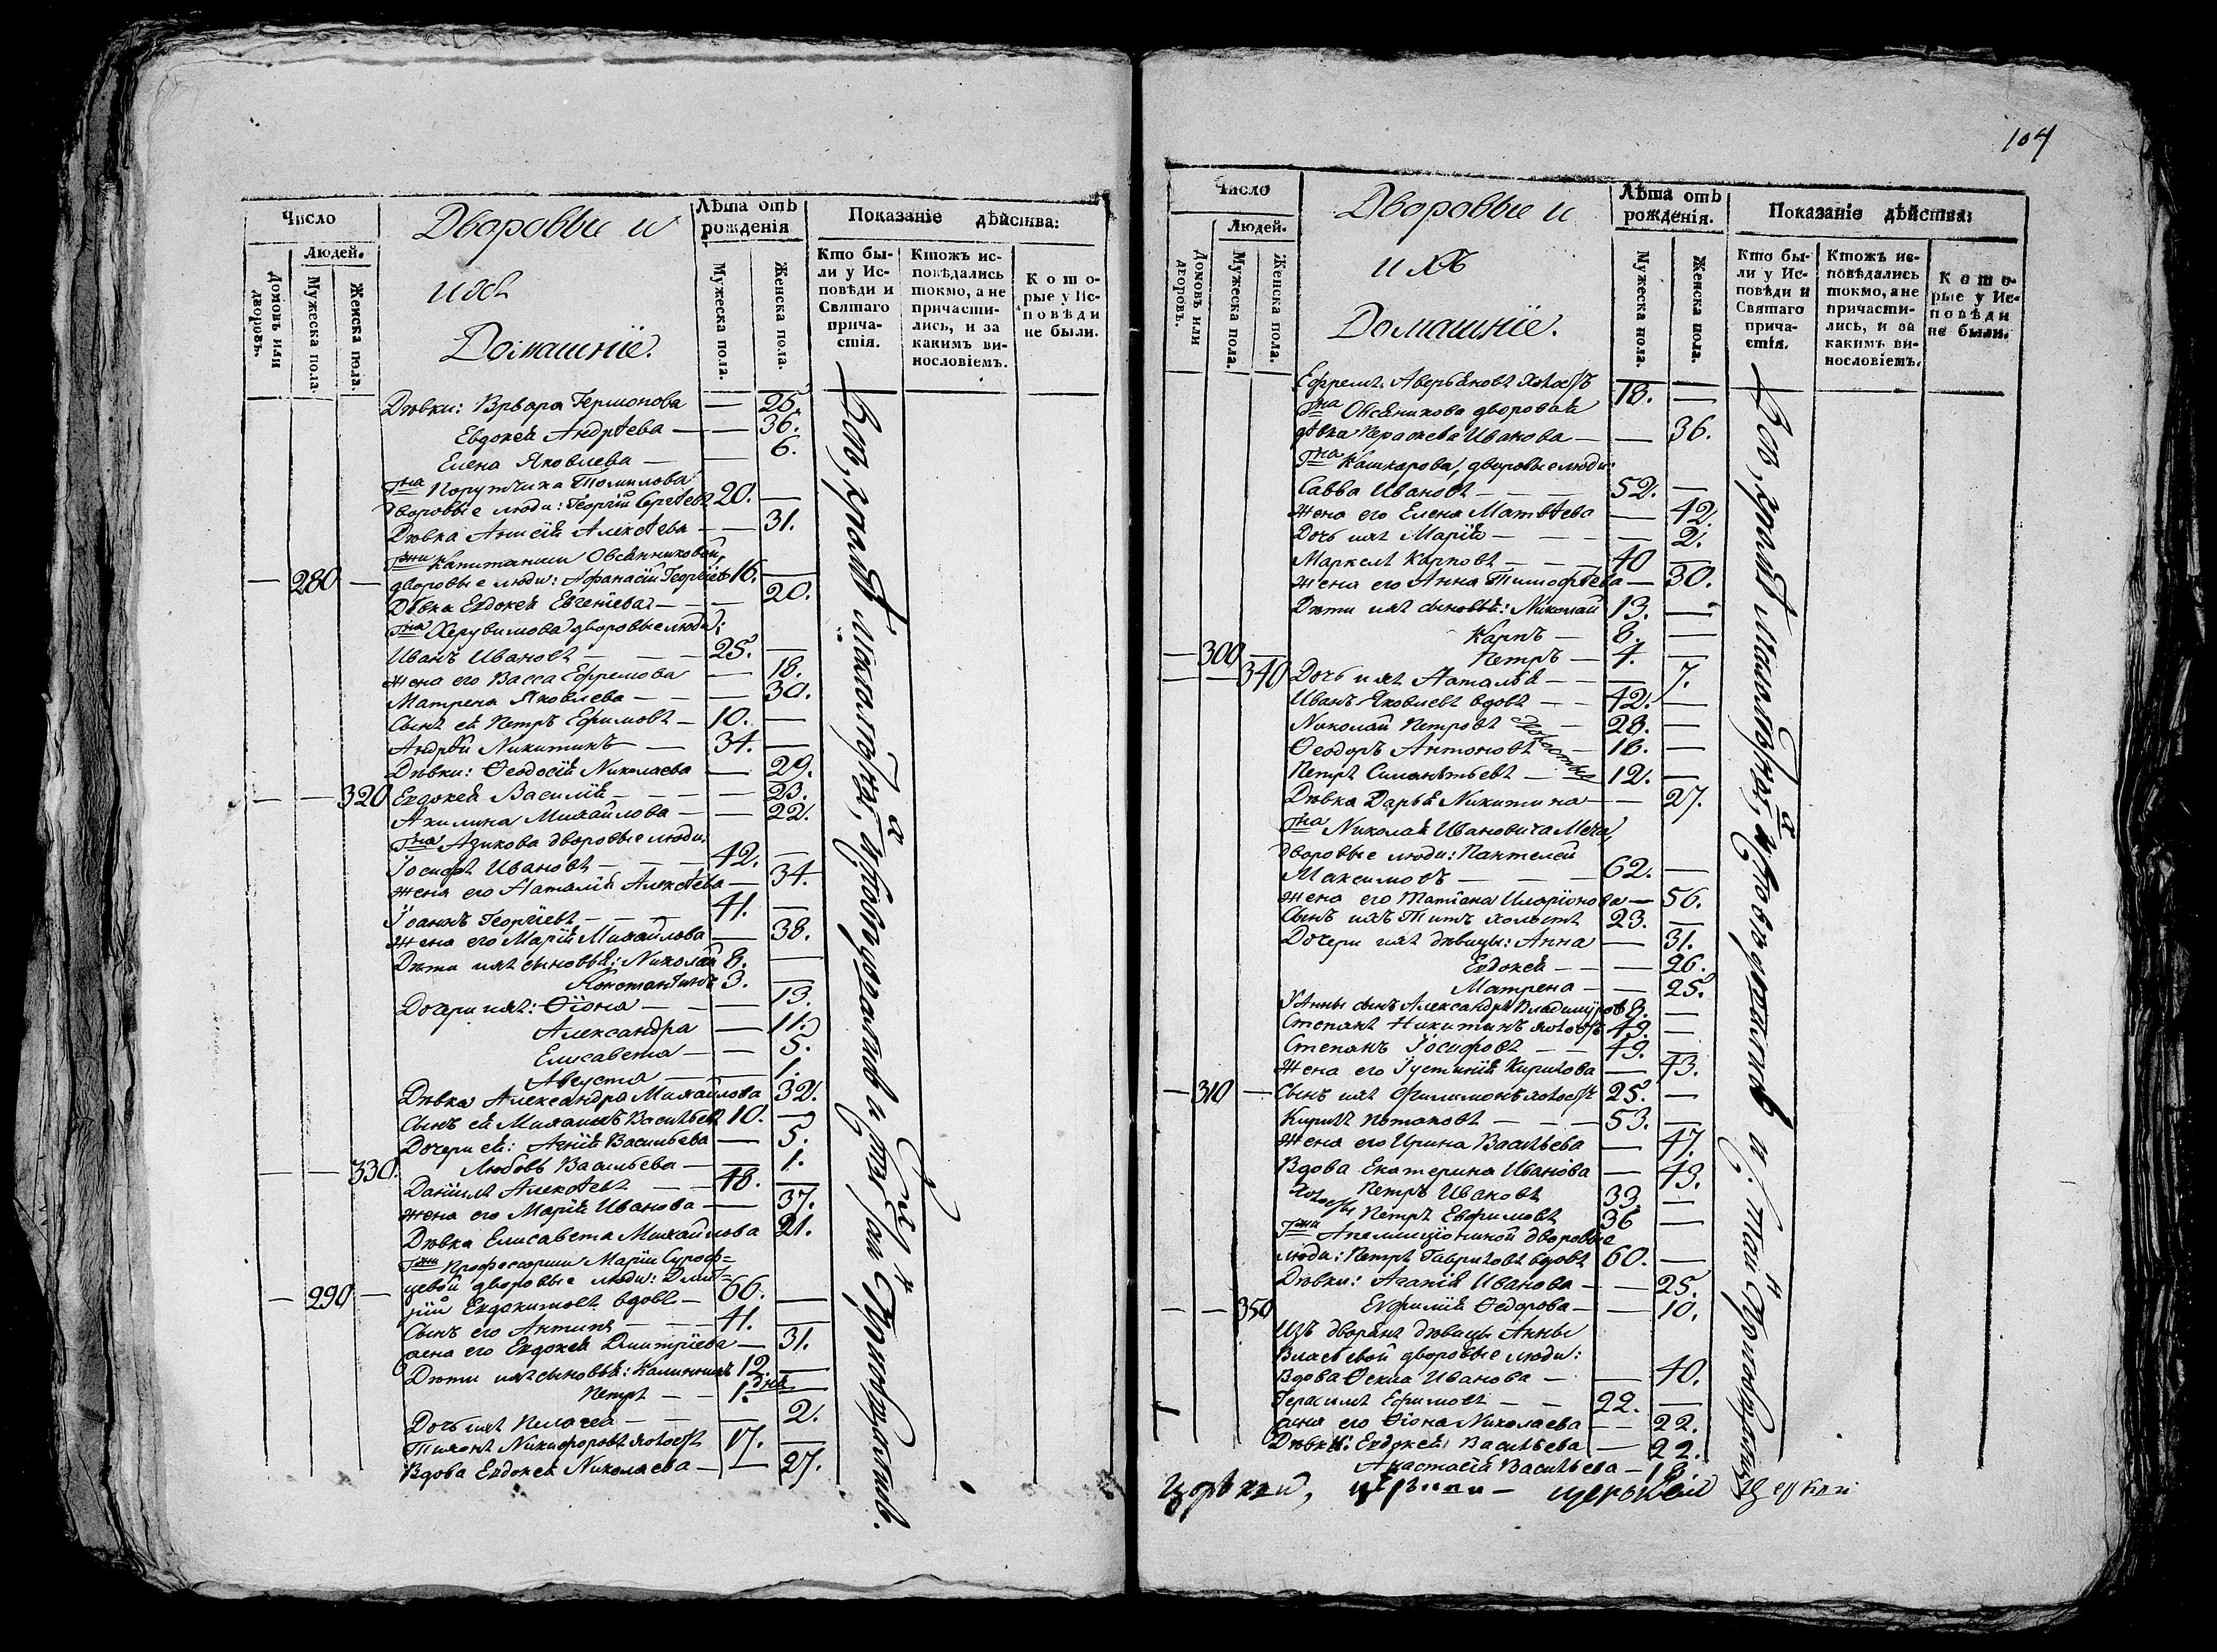 Число
Людей.
Домовъ или дворовъ.
Мужеска пола.
Женска пола.
Дворовые и
ихъ
Домашніе.
Лѣта отъ рожденія
Мужеска пола.
Женска пола.
Показаніе дѣйства:
Кто были у Исповѣди и Святаго причастія.
Ктожъ исповѣдались токмо, а не причастились, и за какимъ винословіемъ.
Которые у Исповѣди не были.
Дѣвки: Врвара Гермонова — 25.
Евдокея Андрѣева — — 36.
Елена Яковлева — — 6.
Гна Порутчика Томилова
дворовые люди: Георгій Сергѣевъ 20. —
Дѣвка Анисія Алексѣева — — 31.
Гжи Капитанши Овсянниковой
— 280 — дворовые люди: Афанасій Георгіевъ 16. —
Дѣвка Евдокея Евгеніева — — 20.
Гна Херувимова дворовые люди:
Иванъ Ивановъ — — 25. —
жена его Васса Ефремова — 18.
Матрена Яковлева — — — 30.
Сынъ ея Петръ Ефимовъ — 10. —
Андрей Никитинъ — — 34. —
Дѣвки: Ѳеодосія Николаева — 29.
— — 320 Евдокея Василія — — — 23.
Акилина Михайлова — — 22.
Гна Азикова дворовые люди:
Іосифъ Ивановъ — — — 42. —
жена его Наталія Алексѣева — 34.
Іоаннъ Георгіевъ — — — 41. —
жена его Марія Михайлова — 38.
Дѣти ихъ сыновья: Николай 8. —
Константинъ 3. —
Дочери ихъ: Ѳіона — — 13.
Александра — 11.
Елисавета — — 5.
Августа — — 1.
Дѣвка Александра Михайлова 32.
Сынъ ея Михаилъ Васильевъ 10. —
Дочери ея: Агнія Васильева — 5.
— — 330. Любовь Васильева — — 1.
Даніилъ Алексѣевъ — — 48. —
жена его Марія Иванова — — 37.
Дѣвка Елисавета Михайлова 21.
Гжи Профессорши Маріи
цевой дворовые люди: Дмит=
— 290 — рій Евдокимовъ вдовъ — 66. —
Сынъ его Антипъ — — — 41. —
жена его Евдокея Дмитріева — 31.
Дѣти ихъ сыновья: Калинникъ 12. —
Петръ — — 1. дня —
Дочь ихъ Пелагея — — — 2.
Тихонъ Никифоровъ холостъ 17. —
Вдова Евдокея Николаева — — 27.
104
Число
Людей.
Домовъ или дворовъ.
Мужеска пола.
Женска пола.
Дворовые и
ихъ
Домашніе.
Лѣта отъ рожденія.
Мужеска пола.
Женска пола.
Показаніе дѣйства:
Кто были у Исповѣди и Святаго причастія.
Ктожъ исповѣдались токмо, а не причастились, и за какимъ винословіемъ.
Которые у Исповѣди не были.
Ефремъ Аверьяновъ холостъ 18. —
Гна Овсяникова дворовая
дѣвка Параскева Иванова — — 36.
Гна Кашкарова, дворовые люди:
Савва Ивановъ — — — 52. —
жена его Елена Матвѣева — 42.
Дочь ихъ Марія — — — — 2.
Маркелъ Карповъ — — — 40 —
жена его Анна Тимофѣева — 30.
Дѣти ихъ сыновья: Николай 13. —
Карпъ — 8. —
— 300 — Петръ — 4. —
— — 340 Дочь ихъ Наталья — — — 7.
Иванъ Яковлевъ вдовъ — — 42. —
Николай Петровъ — 28. —
Ѳеодоръ Антоновъ — 18. —
холостые
Петръ Силантьевъ — 12. —
Дѣвка Дарья Никитина — — 27.
Гна Николая Ивановича
дворовые люди: Пантелей
Максимовъ — — — 62. —
жена его Татіана Иларіонова — 56.
Сынъ ихъ Титъ холостъ 23. —
Дочери ихъ дѣвицы: Анна — 31.
Евдокея — — — 26.
Матрена — — 25.
У Анны сынъ Александръ Владиміровъ 8. —
Степанъ Никитинъ холостъ 49. —
Степанъ Іосифовъ — — 49. —
жена его Іустинія Кирилова — 43.
— 310 — Сынъ ихъ Филимонъ холостъ 25. —
Кирилъ Потаповъ — — — 53. —
жена его Ирина Васильева — 47.
Вдова Екатерина Иванова — 43.
Петръ Ивановъ 33 —
холосты
Петръ Евфимовъ 36 —
Гжи дворовые
люди: Петръ Гавриловъ вдовъ 60. —
Дѣвки: Агапія Иванова — — 25.
— — 350 Евфимія Ѳедорова — — 10.
Изъ дворянъ дѣвицы Анны
Власьевой дворовые люди:
Вдова Ѳекла Иванова — — 40.
Герасимъ Ефимовъ — — 22. —
жена его Ѳіона Николаева — — 22.
Дѣвки: Евдокея Васильева — 22.
Анастасія Васильева — 18.
церькви